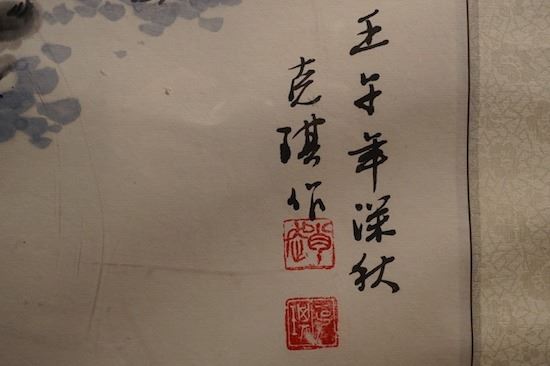 壬午年深秋
克琪作